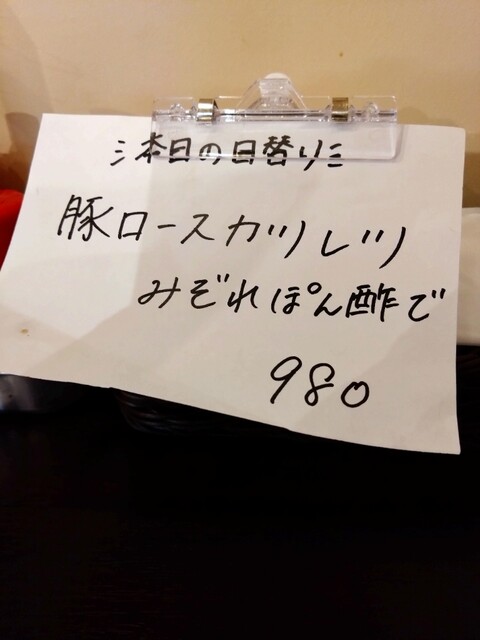 ミ本日の日替りミ
豚ロースカツレツ
みぞれぽん酢で
980